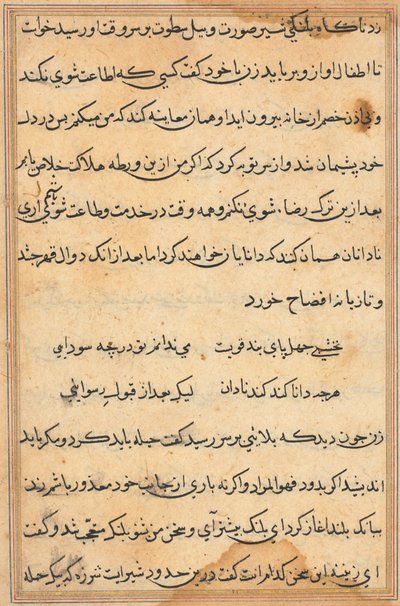 زد ناگاه پلنگی شیر صورت و پیل سطوت بر سر وقت او رسید خواست
تا اطفال او از و برباید زن با خود گفت کسی که اطاعت شوی نکند
و بی اذن خصم از خانه بیرون اید او همان معاینه کند که من میکنم پس در دل
خود پشیمان شد و از سر توبه کرد که اگر من ازین ورطه هلاک خلاص یابم
بعد ازین ترک رضاء شوی نکنم و همه وقت در خدمت و طاعت شوی باشم اری
نادانان همان کنند که دانایان خواهند کرد اما بعد از انک دوال قهر چشند
و تازیانه افضاح خورد
نخشبی جهل پای بند قویست می ندانم تو در چه سودایی
هرچه دانا کند کند نادان لیک بعد از قبول رسوایی
زن چون دید که بلائی بر سر رسید گفت حیله باید کرد و مکر باید
اندیشید اگر بدود فهو المراد و اگر نه باری از جانب خود معذور باشم زن
ببانک بلند اغاز کرد ای پلنگ پیشتر آی و سخن من شنو پلنک متعجب شد و گفت
ای زینه این سخن کدام است گفت درین حدود شیریست شرزه که بیک حیله